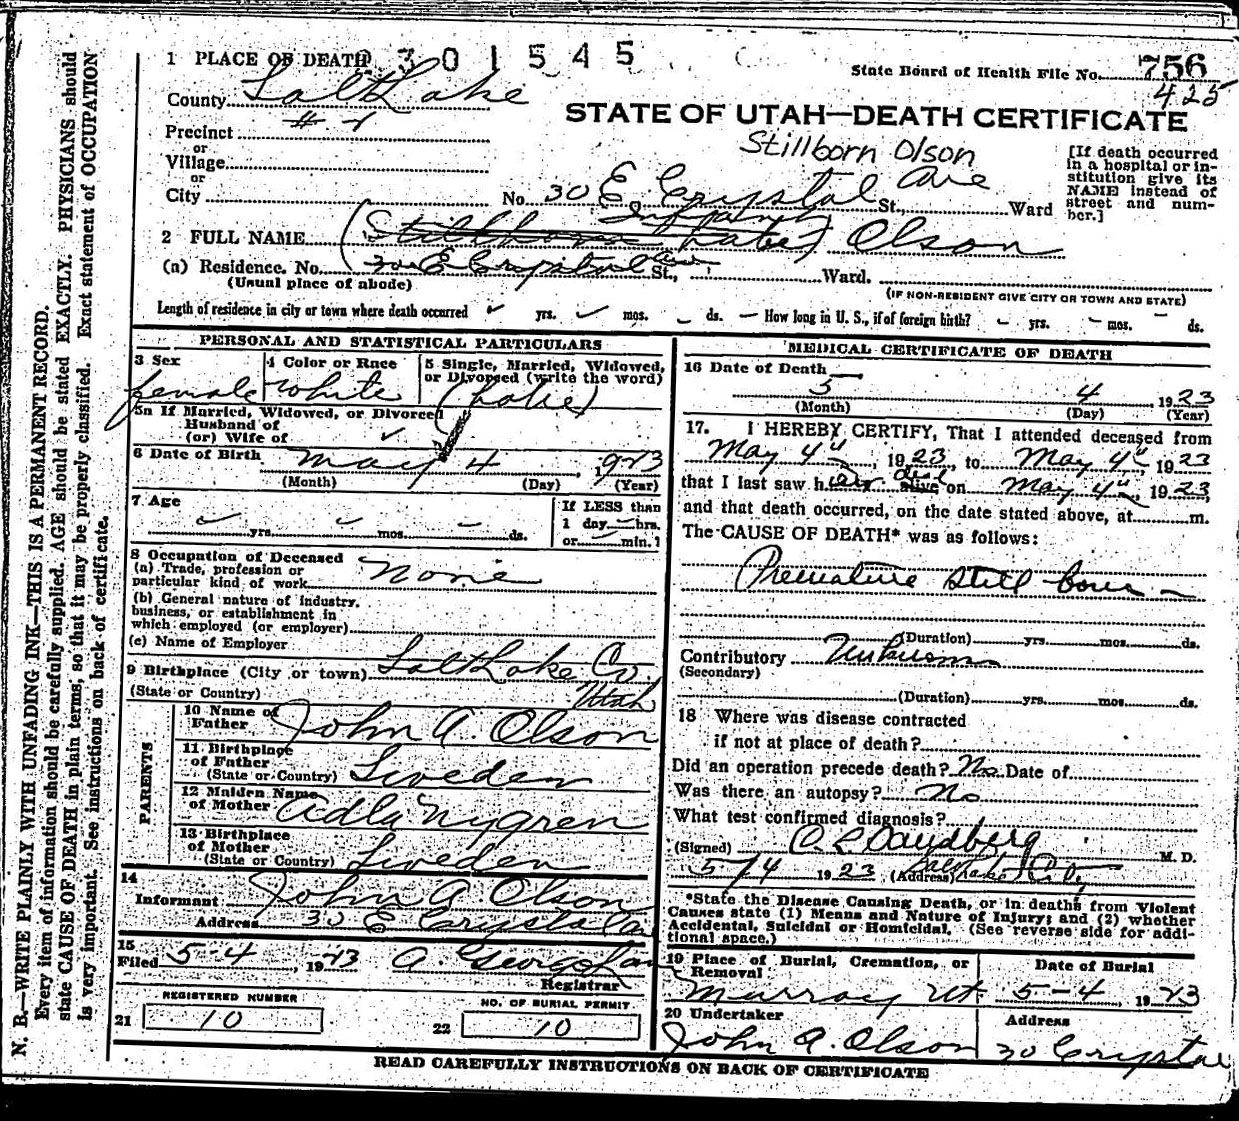 1 PLACE OF DEATH 2301545
State Board of Health File No. 756
425
County Salt Lake
STATE OF UTAH—DEATH CERTIFICATE
Precinct # 1
or
Village
or
City
Stillborn Olson
No. 30 E Crystal Ave St., Ward
[If death occurred
in a hospital or in-
stitution give its
NAME instead of
street and num-
ber.]
2 FULL NAME (Stillborn babe) Infant Olson
(a) Residence. No. 30 E Crystal Ave St., Ward.
(Usual place of abode)
(IF NON-RESIDENT GIVE CITY OR TOWN AND STATE)
Length of residence in city or town where death occurred yrs. mos. ds. How long in U. S., if of foreign birth? yrs. mos. ds.
PERSONAL AND STATISTICAL PARTICULARS
3 Sex
female
4 Color or Race
white
5 Single, Married, Widowed,
or Divorced (write the word)
(babe)
5a If Married, Widowed, or Divorced
Husband of
(or) Wife of
6 Date of Birth May 4, 1923
(Month) (Day) (Year)
7 Age
yrs. mos. ds.
If LESS than
1 day hrs.
or min.?
8 Occupation of Deceased
(a) Trade, profession or
particular kind of work None
(b) General nature of industry,
business, or establishment in
which employed (or employer)
(c) Name of Employer
9 Birthplace (City or town) Salt Lake Co
(State or Country) Utah
PARENTS
10 Name of
Father John A. Olson
11 Birthplace
of Father
(State or Country) Sweden
12 Maiden Name
of Mother Adla Nygren
13 Birthplace
of Mother
(State or Country) Sweden
14
Informant John A Olson
Address 30 E Crystal Av
15
Filed 5-4, 1923 A. George
Registrar
REGISTERED NUMBER
21 10
NO. OF BURIAL PERMIT
22 10
MEDICAL CERTIFICATE OF DEATH
16 Date of Death
5 4 1923
(Month) (Day) (Year)
17. I HEREBY CERTIFY, That I attended deceased from
May 4", 1923, to May 4", 1923
that I last saw her alive dead on May 4", 1923,
and that death occurred, on the date stated above, at m.
The CAUSE OF DEATH* was as follows:
Premature Still born
(Duration) yrs. mos. ds.
Contributory Unknown
(Secondary)
(Duration) yrs. mos. ds.
18 Where was disease contracted
if not at place of death?
Did an operation precede death? No Date of
Was there an autopsy? No
What test confirmed diagnosis?
(Signed) M. D.
5/4 1923 (Address) Salt Lake City
*State the Disease Causing Death, or in deaths from Violent
Causes state (1) Means and Nature of Injury; and (2) whether
Accidental, Suicidal or Homicidal. (See reverse side for addi-
tional space.)
19 Place of Burial, Cremation, or
Removal
Murray Ut
Date of Burial
5-4 1923
20 Undertaker
John A. Olson
Address
30 Crystal
READ CAREFULLY INSTRUCTIONS ON BACK OF CERTIFICATE
N. B.—WRITE PLAINLY WITH UNFADING INK—THIS IS A PERMANENT RECORD.
Every item of information should be carefully supplied. AGE should be stated EXACTLY. PHYSICIANS should
state CAUSE OF DEATH in plain terms, so that it may be properly classified. Exact statement of OCCUPATION
is very important. See instructions on back of certificate.